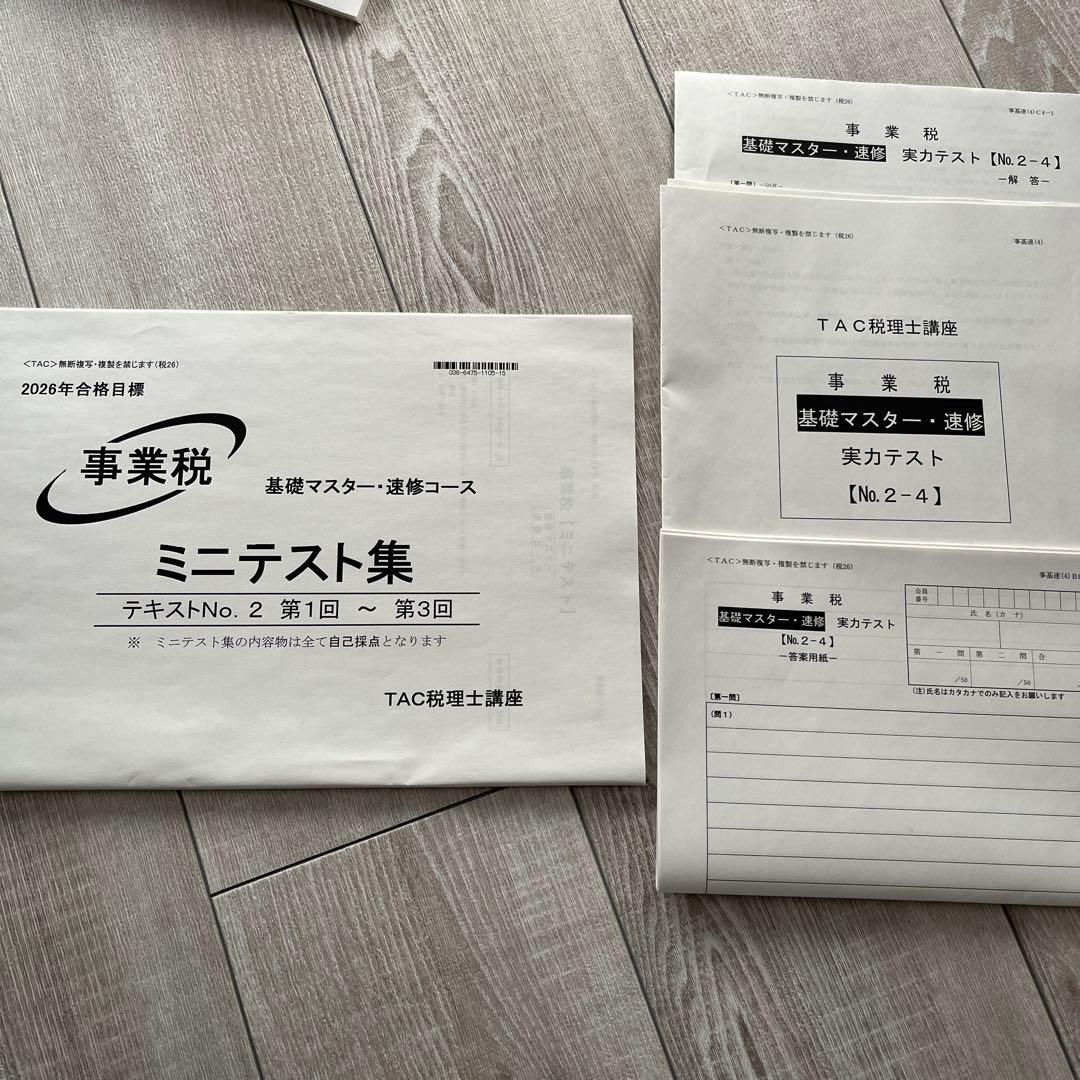 <TAC>無断複写・複製を禁じます(税26)
036-6475-1105-15
2026年合格目標
事業税
基礎マスター・速修コース
ミニテスト集
テキストNo. 2 第1回 ～ 第3回
※ ミニテスト集の内容物は全て自己採点となります
TAC税理士講座
<TAC>無断複写・複製を禁じます(税26)
事基速(4)C4-1
事 業 税
基礎マスター・速修 実力テスト【No.2-4】
-解 答-
〔第一問〕-50点-
<TAC>無断複写・複製を禁じます(税26)
事基速(4)
TAC税理士講座
事 業 税
基礎マスター・速修
実力テスト
【No.2-4】
<TAC>無断複写・複製を禁じます(税26)
事基速(4)B
事 業 税
基礎マスター・速修 実力テスト
【No.2-4】
-答案用紙-
会員番号
氏 名(カ ナ)
第 一 問 第 二 問 合
/50 /50 /
(注)氏名はカタカナでのみ記入をお願いします
〔第一問〕
(問1)